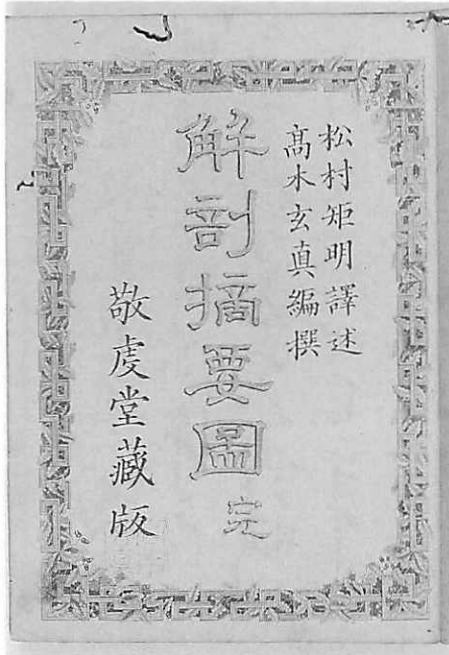 松村矩明譯述
髙木玄真編撰
解剖摘要圖 完
敬虔堂藏版